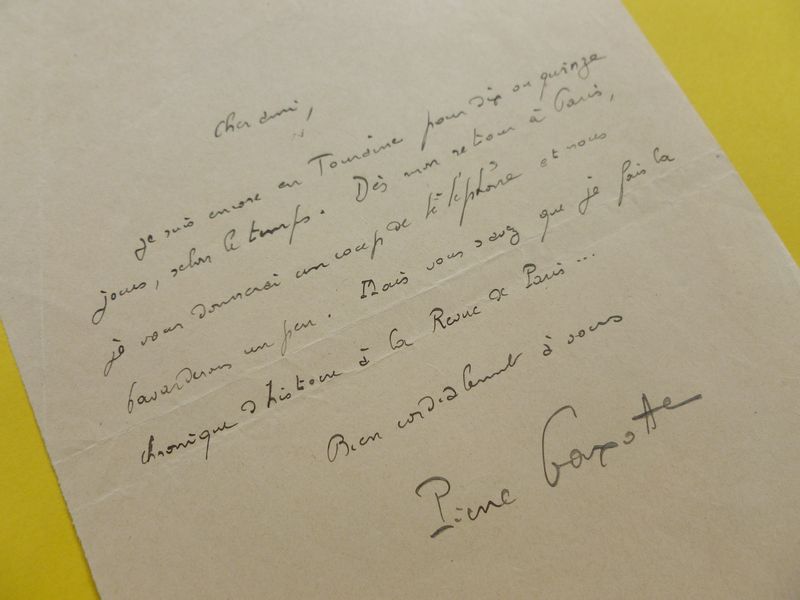 Cher ami,
je suis encore en Touraine pour dix ou quinze
jours, selon le temps. Dès mon retour à Paris,
je vous donnerai un coup de téléphone et nous
bavarderons un peu. Mais vous savez que je fais la
chronique d'histoire à la Revue de Paris...
Bien cordialement à vous
Pierre Gaxotte